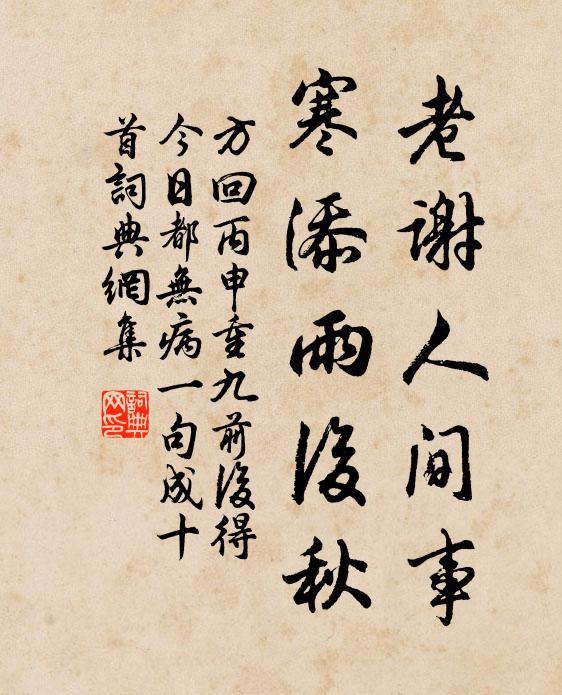 老謝人間事
寒添雨後秋
方回丙申重九前後得
今日都無病一句成十
首詞典網集
詞典
网印